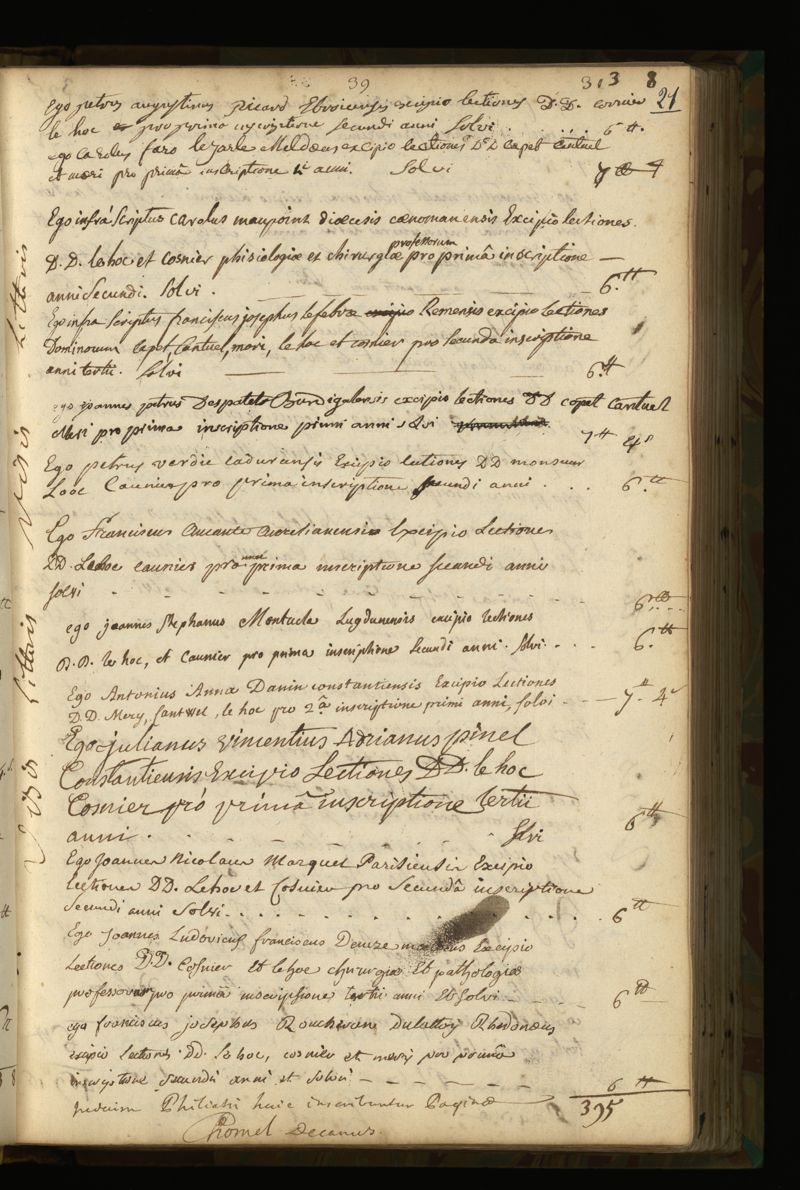 39
313 8
21
Ego petrus augustinus picard Ebroicensis excipio lectiones D.D. cosnier
le hoc pro prima inscriptione secundi anni Solvi . . . . . . 6 tt.
ego carolus faro le jarle Meldensis excipio lectiones D D Capet Cantuel
et meri pro primâ inscriptione 1i anni. Solvi 7 tt 4
Ego infrá Scriptus Carolus maupoint diœcesis cœnomanensis Excipio lectiones.
D. D. lehoc et Cosnier phisiologiæ et chirurgiæ professorum pro primâ inscriptione —
anni Secundi. Solvi . — 6. tt
Ego infra Scriptus franciscus josephus lefebvre Remensis excipio Lectiones
Dominorum Capet, Cantuel, meri, le hoc et cosnier pro Secunda inscriptione
anni tertii. Solvi — 6. tt
ego joannes petrus Despatets Burdigalensis excipio lectiones DD capet Cantuel
Meri pro prima inscriptione primi anni solvi 7 tt 4 s
Ego petrus verdie cadurensis Excipio lectiones DD monsieur
Looc Caunier pro prima inscriptione secundi anni . . . 6. tt
Ego Franciscus Aurelianensis Excipio Lectiones
DD. Lehoc caunier pro prima inscriptione secundi anni
solvi - - - - - - 6. tt
ego joannes stephanus Montucla Lugdunensis excipio lectiones
D. D. le hoc, et Caunier pro prima inscriptione Secundi anni. Solvi. . . . 6. tt
Ego Antonius Anna Danin constantiensis Excipio Lectiones
D. D. Mery, Cantwel, le hoc pro 2.â inscriptione primi anni, solvi - - — 7 tt 4 s
Ego julianus vincentius Adrianus pinel
Constantiensis Excipio Lectiones DD. le hoc
Cosnier pró primâ inscriptione tertii
anni . - - - - - Solvi 6 tt
Ego Joannes Nicolaus Marquet Parisiensis Excipio
lectiones DD. Lehoc et Cosnier pro Secundâ inscriptione
Secundi anni Solvi . . . . . . . . . 6 tt
Ego Joannes Ludovicus franciscus Deneze Excipio
Lectiones D.D. Cosnier et lehoc chirurgiæ et pathologiæ
professorum pro primâ inscriptione tertii anni et Solvi - - - 6 tt
ego franciscus josephus Dulattay Rhedonæus
excipio lectiones DD. le hoc, cosnier et mery pro primâ
inscriptione secundi anni et solvi - - - - - 6 tt
Philiatri huic inscribuntur Paginæ 395
Chomel Decanus.
Visis Litteris Visis Litteris